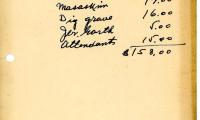 Masaskin
Dig grave 16.00
Jer. North 5.00
Attendants 15.00
$158.00